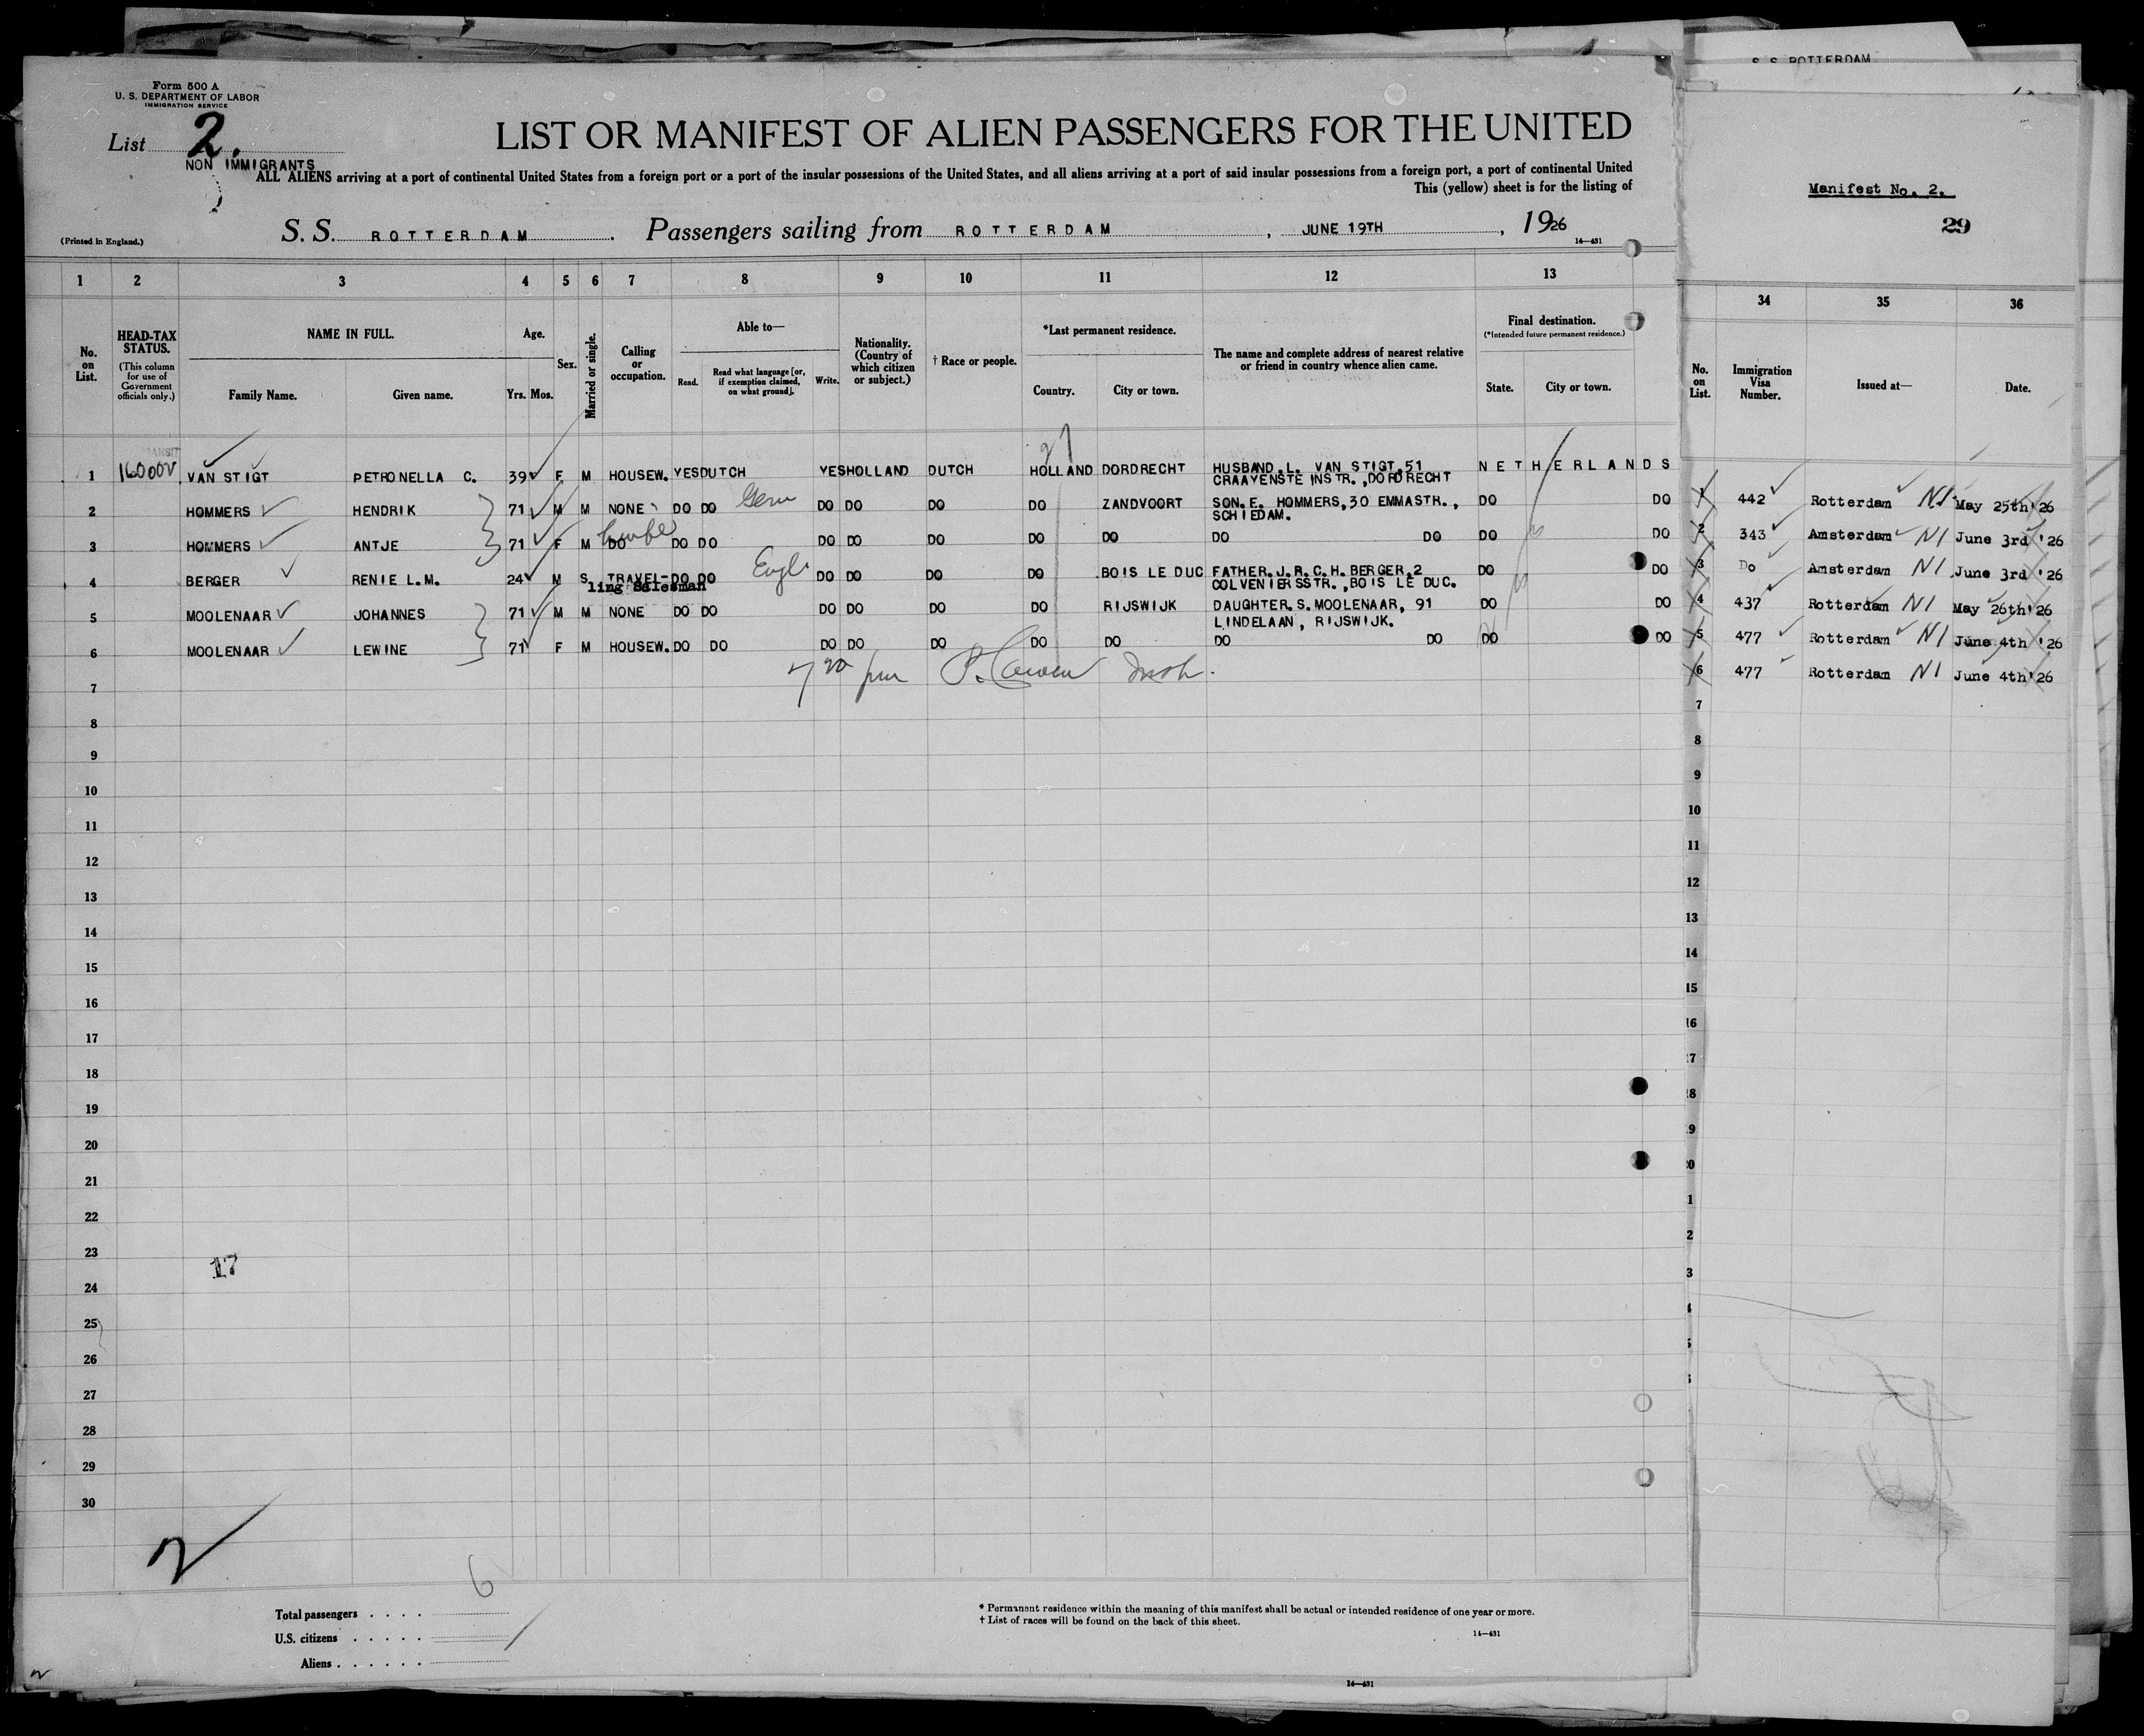 S.S. ROTTERDAM
Form 500 A
U. S. DEPARTMENT OF LABOR
IMMIGRATION SERVICE
List 2.
NON IMMIGRANTS
LIST OR MANIFEST OF ALIEN PASSENGERS FOR THE UNITED
ALL ALIENS arriving at a port of continental United States from a foreign port or a port of the insular possessions of the United States, and all aliens arriving at a port of said insular possessions from a foreign port, a port of continental United
This (yellow) sheet is for the listing of
(Printed in England.)
S. S. ROTTERDAM. Passengers sailing from ROTTERDAM, JUNE 19TH, 1926
14—431
1 2 3 4 5 6 7 8 9 10 11 12 13
No. on List.
HEAD-TAX STATUS.
(This column for use of Government officials only.)
NAME IN FULL.
Family Name. Given name.
Age.
Yrs. Mos.
Sex.
Married or single.
Calling or occupation.
Able to—
Read. Read what language [or, if exemption claimed, on what ground]. Write.
Nationality. (Country of which citizen or subject.)
† Race or people.
*Last permanent residence.
Country. City or town.
The name and complete address of nearest relative or friend in country whence alien came.
Final destination.
(*Intended future permanent residence.)
State. City or town.
27
1 VAN STIGT PETRONELLA C. 39 F M HOUSEW. YES DUTCH YES HOLLAND DUTCH HOLLAND DORDRECHT HUSBAND.L. VAN STIGT,51 NETHERLANDS
CRAAYENSTEINSTR.,DORDRECHT
2 HOMMERS HENDRIK 71 M M NONE DO DO Germ DO DO DO DO ZANDVOORT SON.E. HOMMERS,30 EMMASTR., DO DO
SCHIEDAM.
3 HOMMERS ANTJE 71 F M DO DO DO DO DO DO DO DO DO DO DO DO
4 BERGER RENIE L.M. 24 M S TRAVEL- DO DO Engl DO DO DO DO BOIS LE DUC FATHER.J.R.C.H.BERGER,2 DO DO
ling Salesman COLVENIERSSTR.,BOIS LE DUC.
5 MOOLENAAR JOHANNES 71 M M NONE DO DO DO DO DO DO RIJSWIJK DAUGHTER.S.MOOLENAAR, 91 DO DO
LINDELAAN, RIJSWIJK.
6 MOOLENAAR LEWINE 71 F M HOUSEW. DO DO DO DO DO DO DO DO DO DO DO
7
8
9
10
11
12
13
14
15
16
17
18
19
20
21
22
23
17
24
25
26
27
28
29
30
2
6
Total passengers
U.S. citizens
Aliens
* Permanent residence within the meaning of this manifest shall be actual or intended residence of one year or more.
† List of races will be found on the back of this sheet.
14—431
14—431
Manifest No. 2.
29
34 35 36
No. on List.
Immigration Visa Number.
Issued at—
Date.
1 442 Rotterdam NI May 25th'26
2 343 Amsterdam NI June 3rd '26
3 Do Amsterdam NI June 3rd '26
4 437 Rotterdam NI May 26th'26
5 477 Rotterdam NI June 4th '26
6 477 Rotterdam NI June 4th'26
7
8
9
10
11
12
13
14
15
16